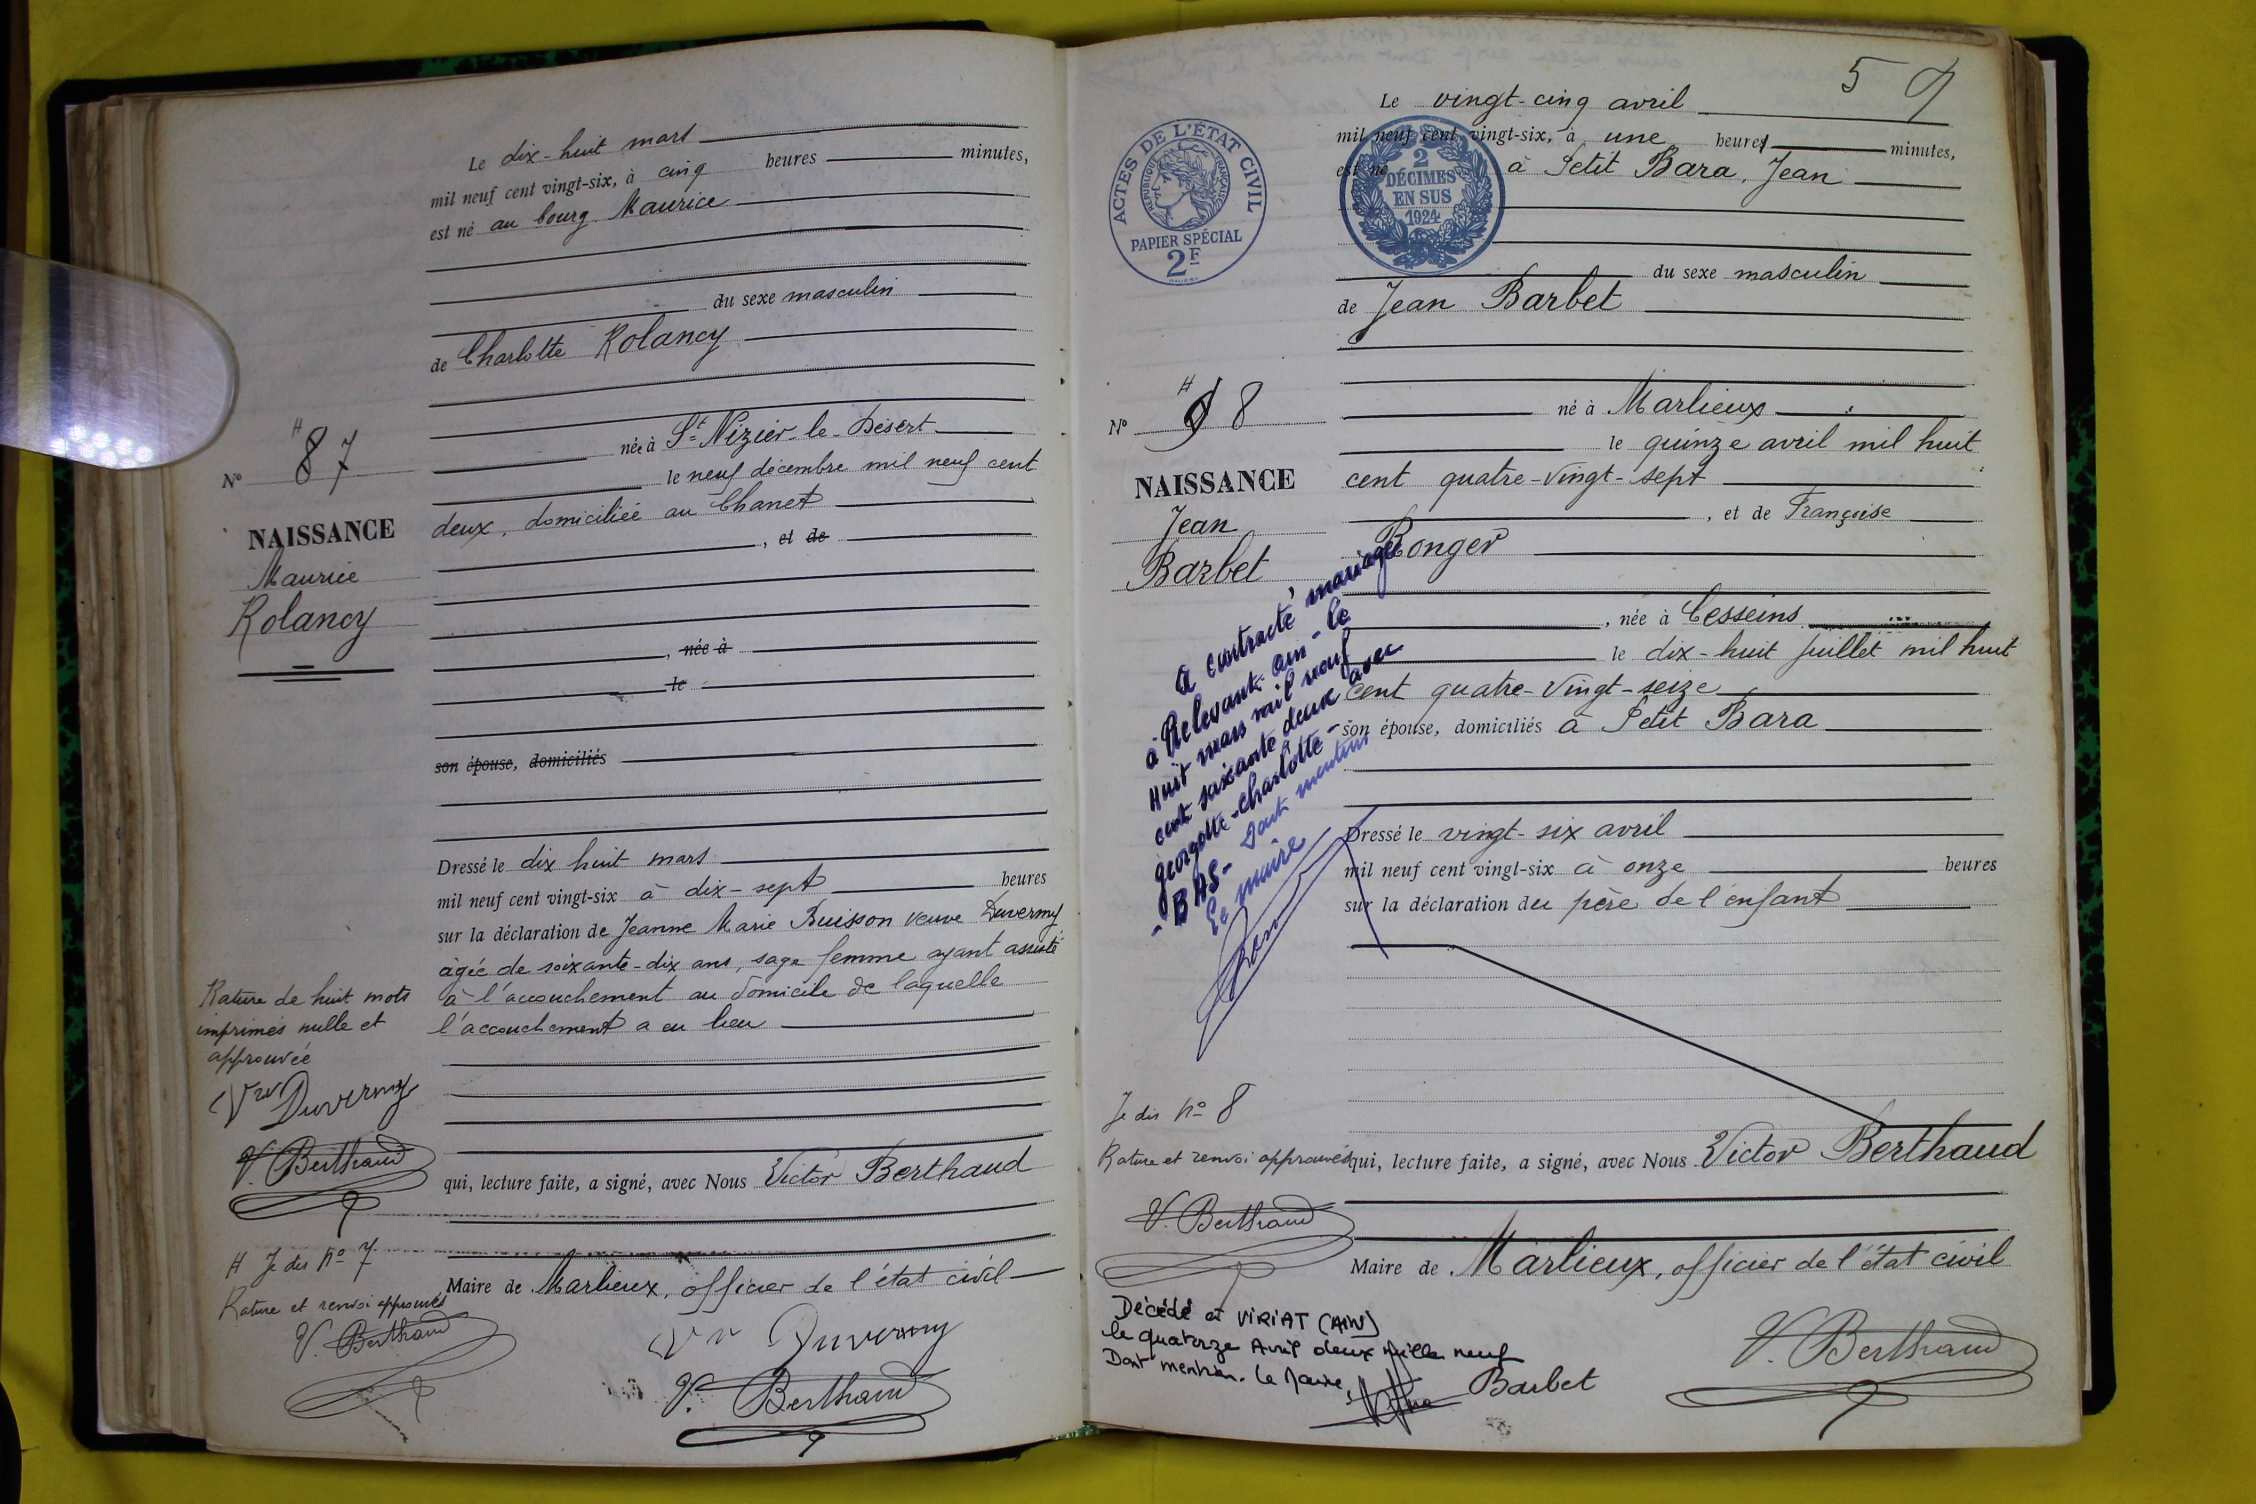 Le dix-huit mars
mil neuf cent vingt-six, à cinq heures minutes,
est né au bourg Maurice
du sexe masculin
de Charlotte Rolancy
née à St Nizier-le-Désert
le neuf décembre mil neuf cent
deux, domiciliée au Chanet
, et de
, née à
le
son épouse, domiciliés
Dressé le dix huit mars
mil neuf cent vingt-six à dix-sept heures
sur la déclaration de Jeanne Marie Buisson veuve Duverny
âgée de soixante-dix ans, sage femme ayant assisté
à l'accouchement au domicile de laquelle
l'accouchement a eu lieu
qui, lecture faite, a signé, avec Nous Victor Berthaud
Maire de Marlieux, officier de l'état civil
Vve Duverny
V. Berthaud
H
N° 8 7
NAISSANCE
Maurice
Rolancy
Rature de huit mots
imprimés nulle et
approuvée
Vve Duverny
V. Berthaud
H Je dis No 7
Rature et renvoi approuvés
V. Berthaud
5
Le vingt-cinq avril
mil neuf cent vingt-six, à une heures minutes,
est né à Petit Bara, Jean
du sexe masculin
de Jean Barbet
né à Marlieux
le quinze avril mil huit
cent quatre-vingt-sept
, et de Françoise
Ronger
, née à Cesseins
le dix-huit juillet mil huit
cent quatre-vingt-seize
son épouse, domiciliés à Petit Bara
Dressé le vingt-six avril
mil neuf cent vingt-six à onze heures
sur la déclaration du père de l'enfant
qui, lecture faite, a signé, avec Nous Victor Berthaud
Maire de Marlieux, officier de l'état civil
V. Berthaud
Barbet
ACTES DE L'ÉTAT CIVIL
RÉPUBLIQUE FRANÇAISE
PAPIER SPÉCIAL
2F
2
DÉCIMES
EN SUS
1924
H
N° 8
NAISSANCE
Jean
Barbet
a contracté mariage
à Relevant-ain-le
huit mars mil neuf
cent soixante deux avec
georgette-charlotte-
-BAS- Dont mention
Le maire
Je dis No 8
Rature et renvoi approuvés
V. Berthaud
Décédé à VIRIAT (AIN)
le quatorze Avril deux mille neuf
Dont mention. Le Maire,